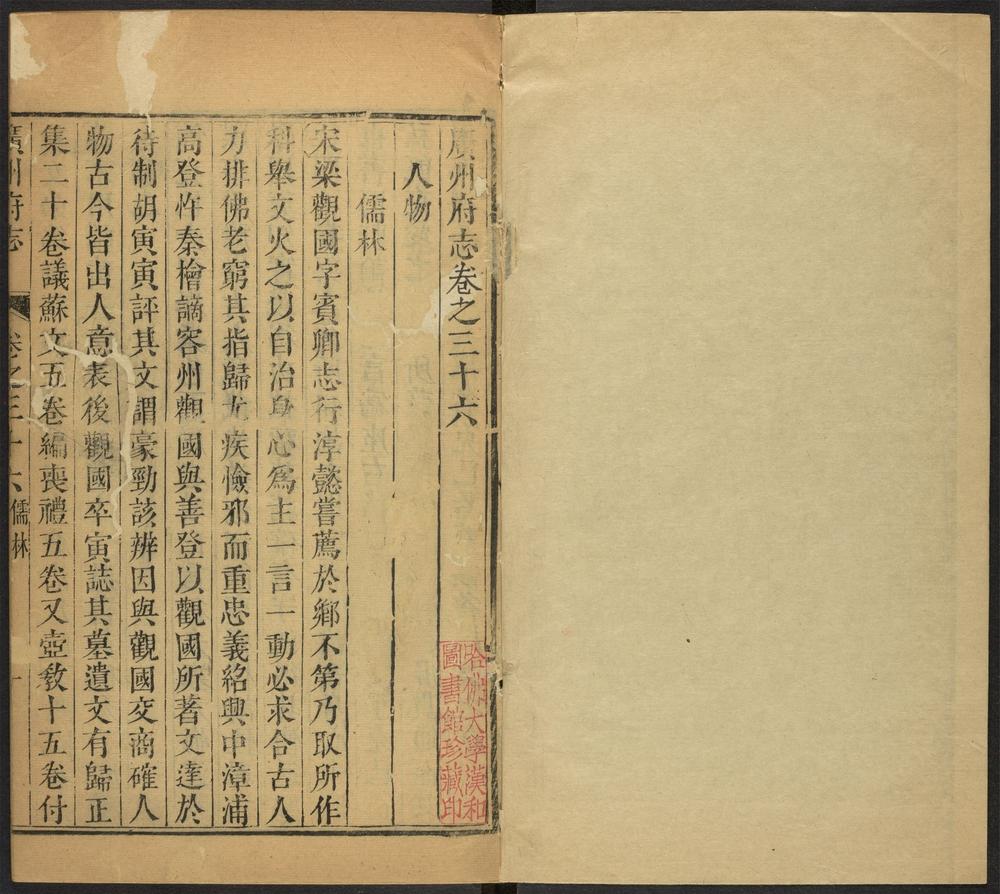 廣州府志卷之三十六
人物
儒林
宋梁觀國字賓卿志行淳懿嘗薦於鄉不第乃取所作
科舉文火之以自治身心為主一言一動必求合古人
力排佛老窮其指歸尤疾憸邪而重忠義紹興中漳浦
高登忤秦檜謫容州觀國與善登以觀國所著文達於
待制胡寅寅評其文謂豪勁該辨因與觀國交商確人
物古今皆出人意表後觀國卒寅誌其墓遺文有歸正
集二十卷議蘇文五卷編喪禮五卷又壺教十五卷付
廣州府志 卷之三十六 儒林 一
哈佛大學漢和
圖書館珍藏印